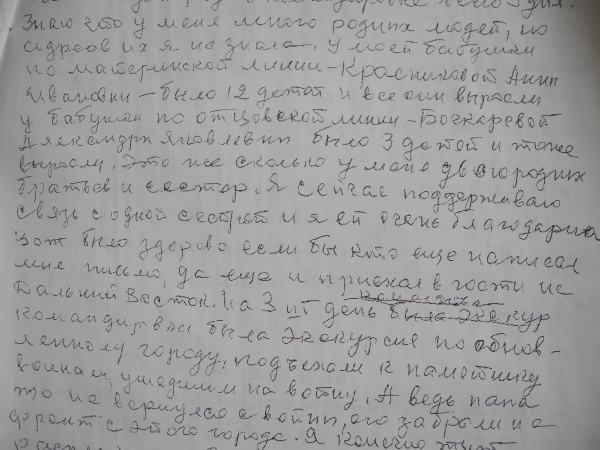 командировке
Знаю что у меня много родных людей, но
адресов их я не знала. У моей бабушки
по материнской линии - Красниковой Анны
Ивановны - было 12 детей и все они выросли
у бабушки по отцовской линии - Бочкаревой
Александры Яковлевны было 3 детей и тоже
выросли. Это же сколько у меня двоюродных
братьев и сестер. Я сейчас поддерживаю
связь с одной сестрой и я ей очень благодарна
Вот было здорово если бы кто еще написал
мне письмо, да еще и приехал в гости на
Дальний Восток. На 3ий день была экскур
командировки была экскурсия по обнов-
ленному городу, подъехали к памятнику
воинам, ушедшим на войну. А ведь папа
то не вернулся с войны, его забрали на
фронт с этого города. Я конечно